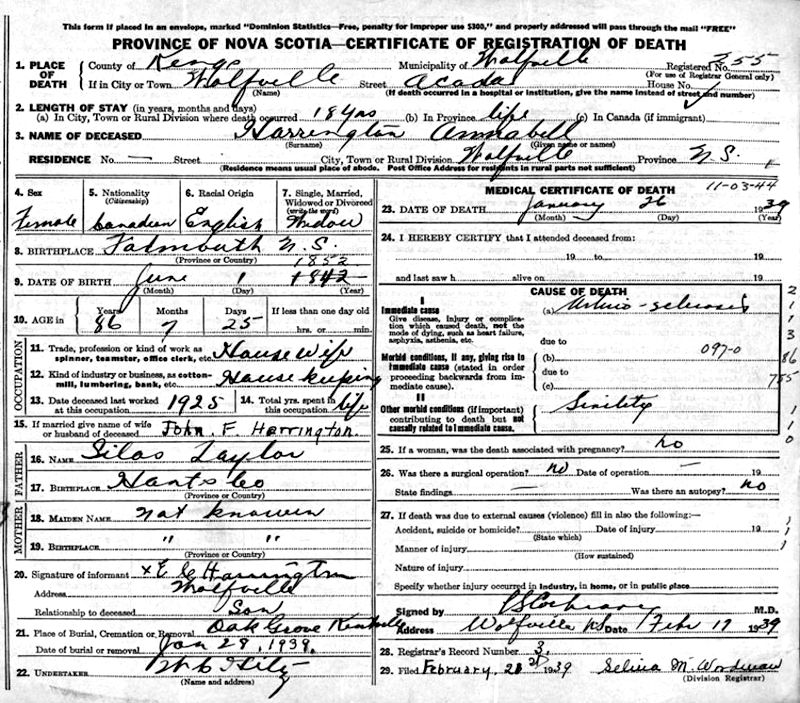 This form if placed in an envelope, marked "Dominion Statistics—Free, penalty for improper use $300," and properly addressed will pass through the mail "FREE"
PROVINCE OF NOVA SCOTIA—CERTIFICATE OF REGISTRATION OF DEATH
1. PLACE OF DEATH County of Kings Municipality of Wolfville Registered No. 255
(For use of Registrar General only)
If in City or Town Wolfville Street Acadia House No.
(Name) (If death occurred in a hospital or institution, give the name instead of street and number)
2. LENGTH OF STAY (in years, months and days)
(a) In City, Town or Rural Division where death occurred 18 yrs (b) In Province life (c) In Canada (if immigrant)
3. NAME OF DECEASED Harrington Annabell
(Surname) (Given name or names)
RESIDENCE No. — Street City, Town or Rural Division Wolfville Province N.S.
(Residence means usual place of abode. Post Office Address for residents in rural parts not sufficient)
4. Sex Female
5. Nationality (Citizenship) Canadian
6. Racial Origin English
7. Single, Married, Widowed or Divorced (write the word) Widow
8. BIRTHPLACE Falmouth N.S.
(Province or Country)
1852
9. DATE OF BIRTH June 1 1842
(Month) (Day) (Year)
10. AGE in Years 86 Months 7 Days 25 If less than one day old
hrs. or min.
OCCUPATION
11. Trade, profession or kind of work as spinner, teamster, office clerk, etc. House wife
12. Kind of industry or business, as cotton-mill, lumbering, bank, etc. House keeping
13. Date deceased last worked at this occupation 1925 14. Total yrs. spent in this occupation life
15. If married give name of wife or husband of deceased John F. Harrington.
FATHER
16. NAME Silas Taylor
17. BIRTHPLACE Hants Co
(Province or Country)
MOTHER
18. MAIDEN NAME not known
19. BIRTHPLACE " "
(Province or Country)
20. Signature of informant x E C Harrington
Address Wolfville
Relationship to deceased Son
21. Place of Burial, Cremation or Removal Oak Grove Kentville
Date of burial or removal Jan 28, 1939.
22. UNDERTAKER
(Name and address)
MEDICAL CERTIFICATE OF DEATH 11-03-44
23. DATE OF DEATH January 26 1939
(Month) (Day) (Year)
24. I HEREBY CERTIFY that I attended deceased from:
19 to 19
and last saw h alive on 19
CAUSE OF DEATH
I
Immediate cause (a) Arterio-sclerosis
Give disease, injury or complication which caused death, not the mode of dying, such as heart failure, asphyxia, asthenia, etc.
due to
Morbid conditions, if any, giving rise to immediate cause (stated in order proceeding backwards from immediate cause).
(b) 097-0
due to
(c)
II
Other morbid conditions (if important) contributing to death but not causally related to immediate cause. Senility
2
1
1
3
86
755
1
1
0
25. If a woman, was the death associated with pregnancy? no
26. Was there a surgical operation? no Date of operation — 19
State findings — Was there an autopsy? no
27. If death was due to external causes (violence) fill in also the following:—
Accident, suicide or homicide? Date of injury 19
(State which)
Manner of injury
(How sustained)
Nature of injury
Specify whether injury occurred in industry, in home, or in public place
Signed by Cochrane M.D.
Address Wolfville NS Date Febr 17 1939
28. Registrar's Record Number 3.
29. Filed February, 21st 1939 Selina M. Woodman
(Division Registrar)